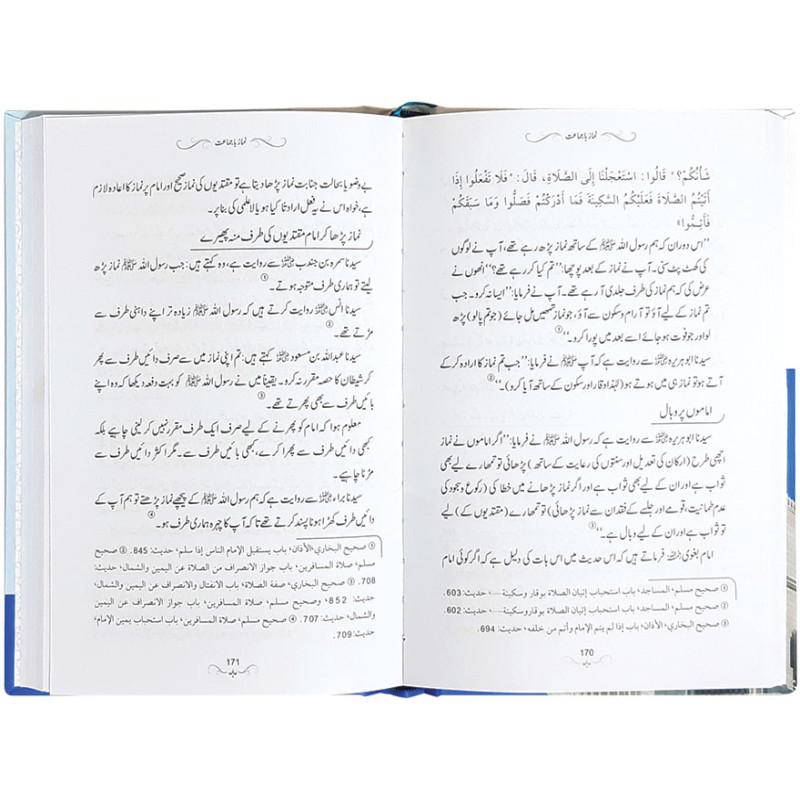 نماز باجماعت
شَأْنُكُمْ؟» قَالُوا: اسْتَعْجَلْنَا إِلَى الصَّلَاةِ، قَالَ: «فَلَا تَفْعَلُوا إِذَا
أَتَيْتُمُ الصَّلَاةَ فَعَلَيْكُمُ السَّكِينَةَ فَمَا أَدْرَكْتُمْ فَصَلُّوا وَمَا سَبَقَكُمْ
فَأَتِمُّوا»
’’اس دوران کہ ہم رسول اللہ ﷺ کے ساتھ نماز پڑھ رہے تھے، آپ نے لوگوں
کی کھٹ پٹ سنی۔ آپ نے نماز کے بعد پوچھا: ’’تم کیا کر رہے تھے؟‘‘ انھوں نے
عرض کی کہ ہم نماز کی طرف جلدی آ رہے تھے۔ آپ نے فرمایا: ’’ایسا نہ کرو۔ جب
تم نماز کے لیے آؤ تو آرام وسکون سے آؤ، جو نماز تمھیں مل جائے (جو تم پا لو) پڑھ
لو اور جو فوت ہو جائے اسے بعد میں پورا کرو۔‘‘①
سیدنا ابوہریرہ ؓ سے روایت ہے کہ آپ ﷺ نے فرمایا: ’’جب تم نماز کا ارادہ کر کے
آتے ہو تو نماز ہی میں ہوتے ہو (لہٰذا وقار اور سکون کے ساتھ آیا کرو)۔‘‘②
اماموں پر وبال
سیدنا ابوہریرہ ؓ سے روایت ہے کہ رسول اللہ ﷺ نے فرمایا: ’’اگر اماموں نے نماز
اچھی طرح (ارکان کی تعدیل اور سنتوں کی رعایت کے ساتھ) پڑھائی تو تمھارے لیے بھی
ثواب ہے اور ان کے لیے بھی ثواب ہے اور اگر نماز پڑھانے میں خطا کی (رکوع و سجود کی
عدم طمانیت، قومے اور جلسے کے فقدان سے نماز پڑھائی) تو تمھارے (مقتدیوں کے) لیے
تو ثواب ہے اور ان کے لیے وبال ہے۔‘‘③
امام بغوی ؒ فرماتے ہیں کہ اس حدیث میں اس بات کی دلیل ہے کہ اگر کوئی امام
① صحيح مسلم، المساجد، باب استحباب إتيان الصلاة بوقار وسكينة ....، حديث: 603.
② صحيح مسلم، المساجد، باب استحباب إتيان الصلاة بوقار وسكينة ....، حديث: 602.
③ صحيح البخاري، الأذان، باب إذا لم يتم الإمام وأتم من خلفه، حديث: 694.
170
نماز باجماعت
بے وضو یا بحالت جنابت نماز پڑھا دیتا ہے تو مقتدیوں کی نماز صحیح اور امام پر نماز کا اعادہ لازم
ہے، خواہ اس نے یہ فعل ارادتا کیا ہو یا لاعلمی کی بنا پر۔
نماز پڑھا کر امام مقتدیوں کی طرف منہ پھیرے
سیدنا سمرہ بن جندب ؓ سے روایت ہے، وہ کہتے ہیں: جب رسول اللہ ﷺ نماز پڑھ
لیتے تو ہماری طرف متوجہ ہوتے۔①
سیدنا انس ؓ روایت کرتے ہیں کہ رسول اللہ ﷺ زیادہ تر اپنے داہنی طرف سے
مڑتے تھے۔②
سیدنا عبداللہ بن مسعود ؓ کہتے ہیں: تم اپنی نماز میں سے صرف دائیں طرف سے پھر
کر شیطان کا حصہ مقرر نہ کرو۔ یقیناً میں نے رسول اللہ ﷺ کو بہت دفعہ دیکھا کہ وہ اپنے
بائیں طرف سے بھی پھرتے تھے۔③
معلوم ہوا کہ امام کو پھرنے کے لیے صرف ایک طرف مقرر نہیں کر لینی چاہیے بلکہ
کبھی دائیں طرف سے پھرا کرے، کبھی بائیں طرف سے۔ مگر اکثر دائیں طرف سے
مڑنا چاہیے۔
سیدنا براء ؓ سے روایت ہے کہ ہم رسول اللہ ﷺ کے پیچھے نماز پڑھتے تو ہم آپ کے
دائیں طرف کھڑا ہونا پسند کرتے تھے تاکہ آپ کا چہرہ ہماری طرف ہو۔④
① صحيح البخاري، الأذان، باب يستقبل الإمام الناس إذا سلم، حديث: 845. ② صحيح
مسلم، صلاة المسافرين، باب جواز الانصراف من الصلاة عن اليمين والشمال، حديث:
708. ③ صحيح البخاري، صفة الصلاة، باب الانفتال والانصراف عن اليمين والشمال،
حديث: 852، وصحيح مسلم، صلاة المسافرين، باب جواز الانصراف عن اليمين
والشمال، حديث: 707. ④ صحيح مسلم، صلاة المسافرين، باب استحباب يمين الإمام،
حديث: 709.
171